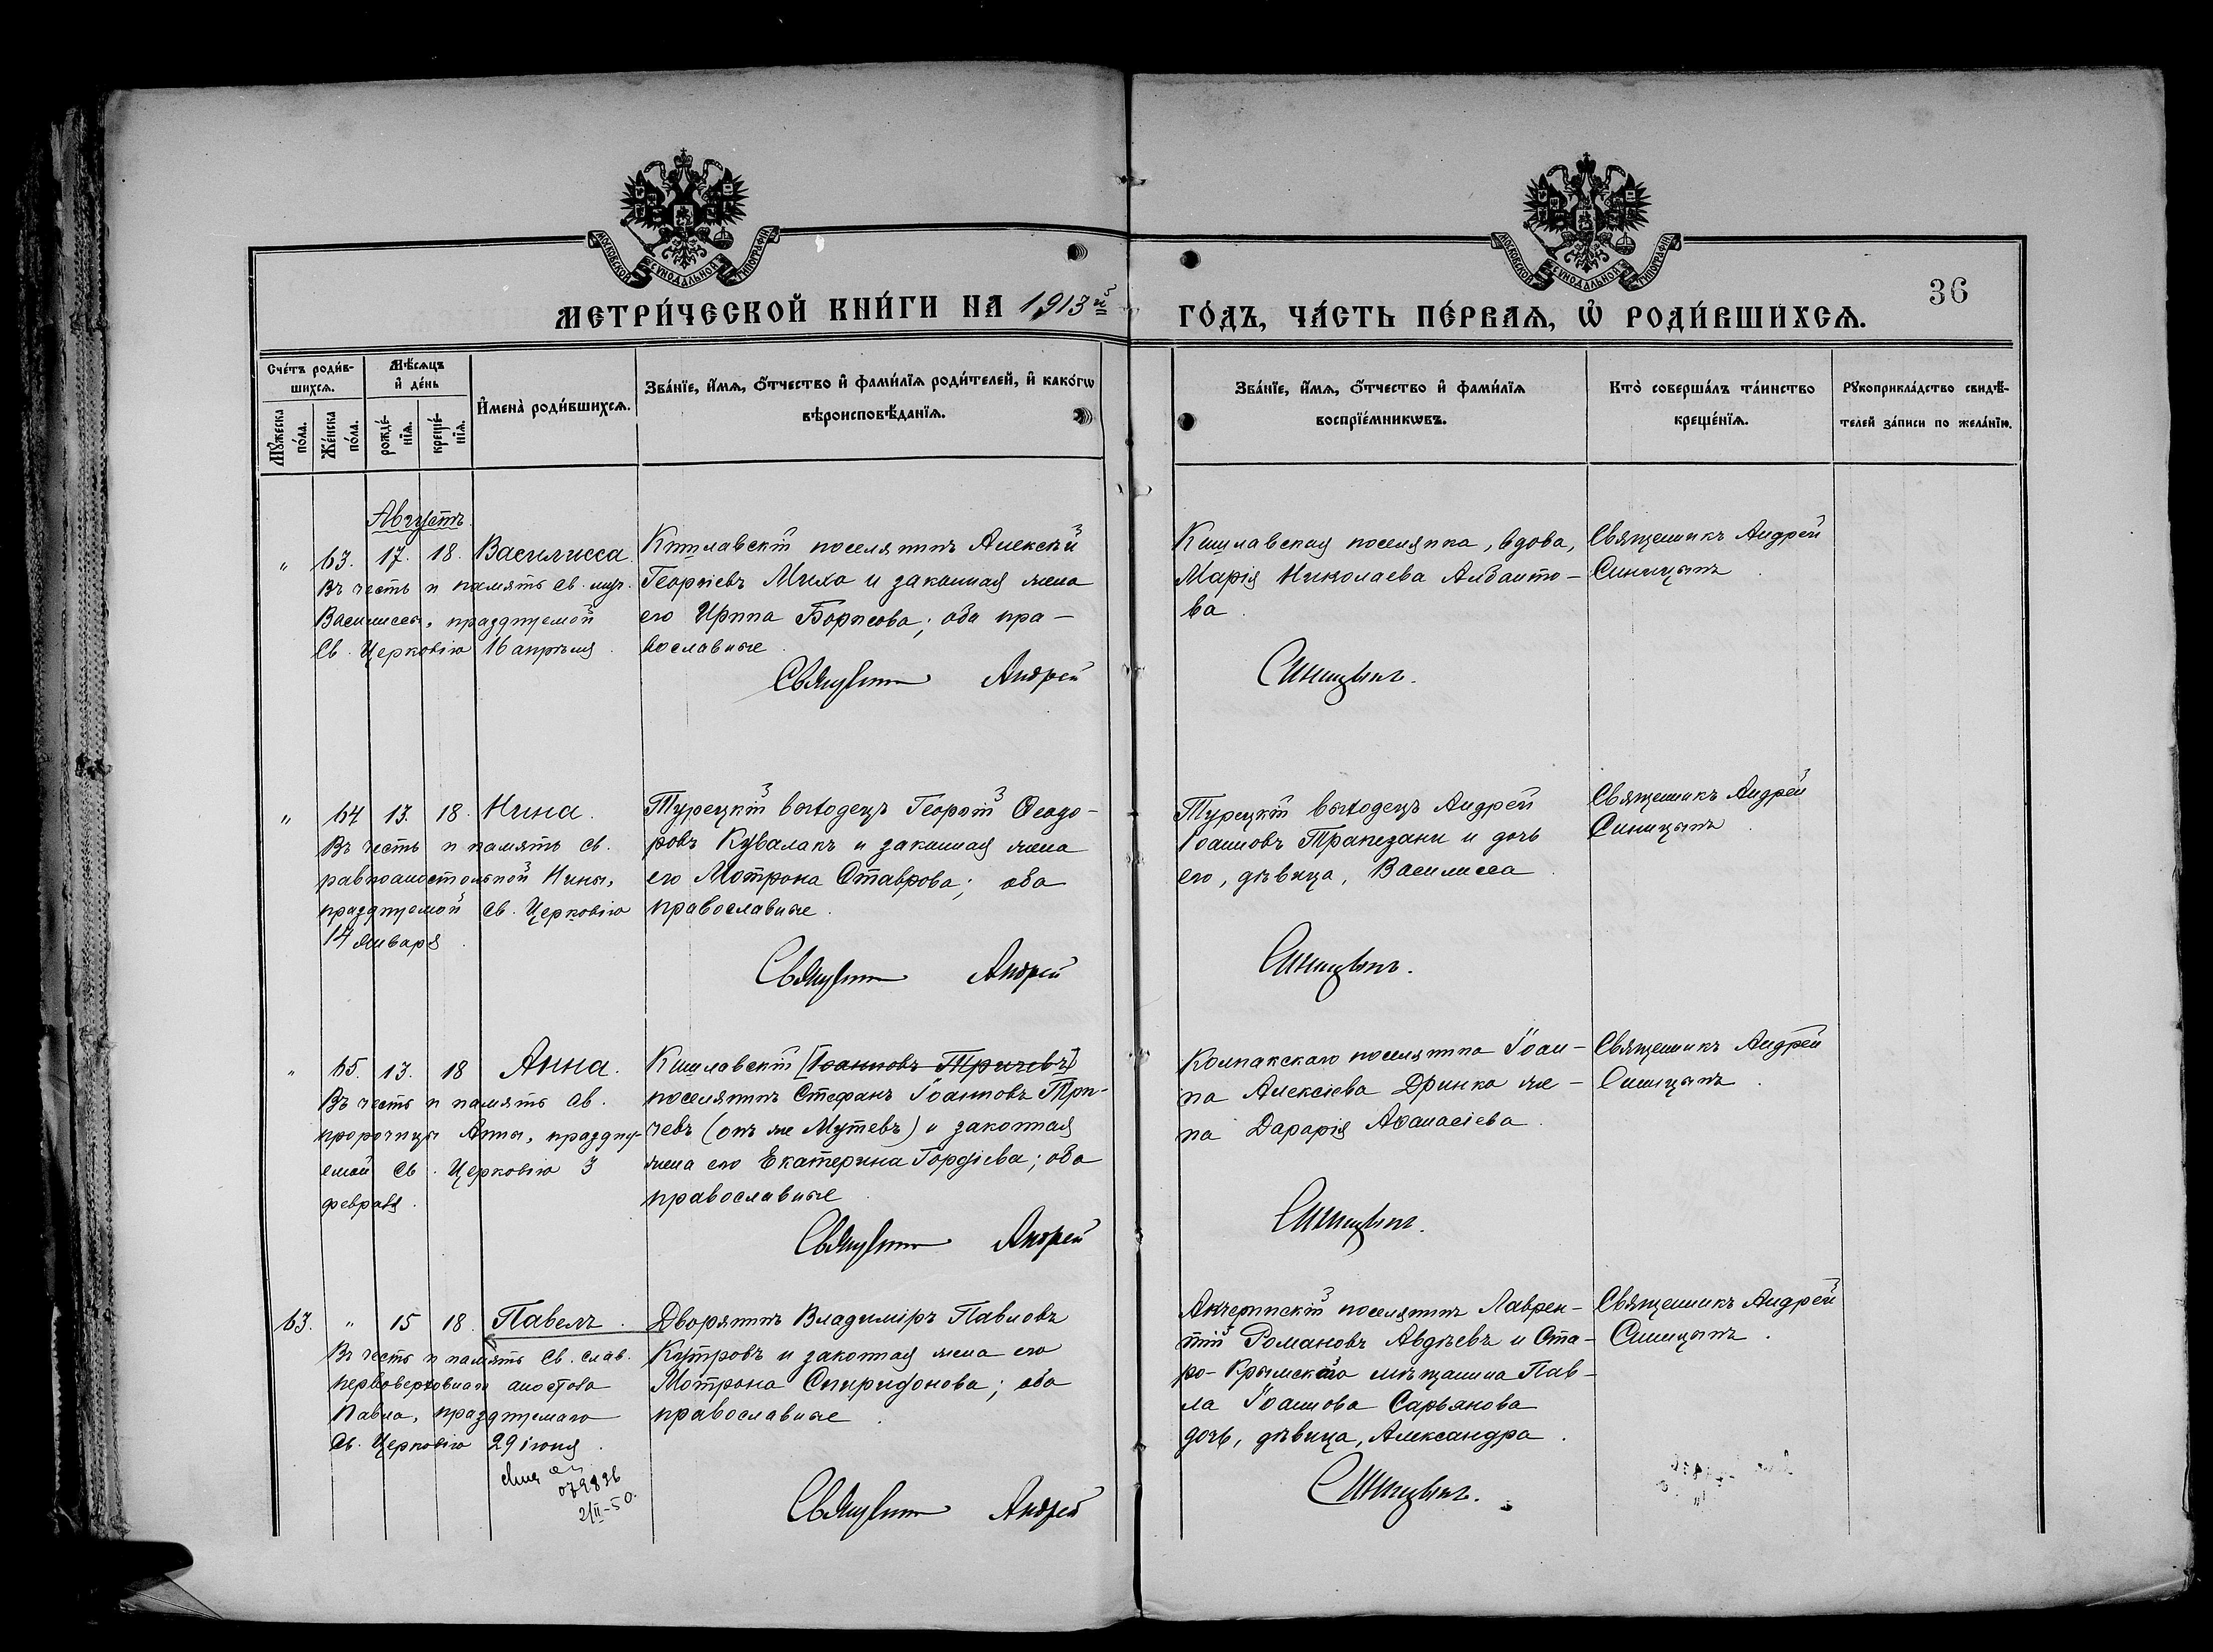 МОСКОВСКОЙ СѴНОДАЛЬНОЙ ТИПОГРАФІИ
МОСКОВСКОЙ СѴНОДАЛЬНОЙ ТИПОГРАФІИ
36
МЕТРИ́ЧЕСКОЙ КНИ́ГИ НА 1913й
ГО́ДЪ, ЧА́СТЬ ПЕ́РВАЯ, Ѡ РОДИ́ВШИХСЯ.
Сче́тъ роди́в-
шихся.
Мѣ́сяцъ
и де́нь
Мꙋ́жеска
по́ла.
Же́нска
по́ла.
рожде́-
нїя.
креще́-
нїя.
Имена̀ роди́вшихся.
Зва́нїе, и́мя, о́тчество и фами́лїя роди́телей, и како́гѡ
вѣроисповѣ́данїя.
Зва́нїе, и́мя, о́тчество и фами́лїя
воспрїе́мникѡвъ.
Кто̀ соверша́лъ та́инство
креще́нїя.
Рꙋкоприкла́дство свидѣ́-
телей за́писи по жела́нїю.
Августъ
" 63. 17. 18. Василисса.
Въ честь и память св. муч.
Василиссы, празднуемой
Св. Церковію 16 апрѣля.
Кишлавскій поселянинъ Алексѣй
Георгіевъ Михо и законная жена
его Ирина Борисова; оба пра-
вославные.
Священникъ Андрей
Кишлавская поселянка, вдова,
Марія Николаева Албанто-
ва.
Синицынъ.
Священникъ Андрей
Синицынъ.
" 64 13. 18. Нина.
Въ честь и память св.
равноапостольной Нины,
празднуемой св. Церковію
14 января.
Турецкій выходецъ Георгій Ѳеодо-
ровъ Кувалакъ и законная жена
его Мотрона Ставрова; оба
православные.
Священникъ Андрей
Турецкій выходецъ Андрей
Іоанновъ Трапезани и дочь
его, дѣвица, Василисса.
Синицынъ.
Священникъ Андрей
Синицынъ.
" 65. 13. 18 Анна.
Въ честь и память св.
пророчицы Анны, праздну-
емой св. Церковію 3
февраля.
Кишлавскій [Іоанновъ Тричевъ]
поселянинъ Стефанъ Іоанновъ Три-
чевъ (онъ же Мутевъ) и законная
жена его Екатерина Гордіева; оба
православные.
Священникъ Андрей
Колпакскаго поселянина Іоан-
на Алексіева Дринка же-
на Дарарія Аѳанасіева.
Синицынъ.
Священникъ Андрей
Синицынъ.
63. " 15 18. Павелъ.
Въ честь и память св. слав.
первоверховнаго апостола
Павла, празднуемаго
св. Церковію 29 іюня.
079896
2/II-50.
Дворянинъ Владиміръ Павловъ
Кутровъ и законная жена его
Мотрона Спиридонова; оба
православные.
Священникъ Андрей
Акчеринскій поселянинъ Лаврен-
тій Романовъ Авдѣевъ и Ста-
ро-Крымскаго мѣщанина Пав-
ла Іоаннова Сарьянова
дочь, дѣвица, Александра.
Синицынъ.
Священникъ Андрей
Синицынъ.